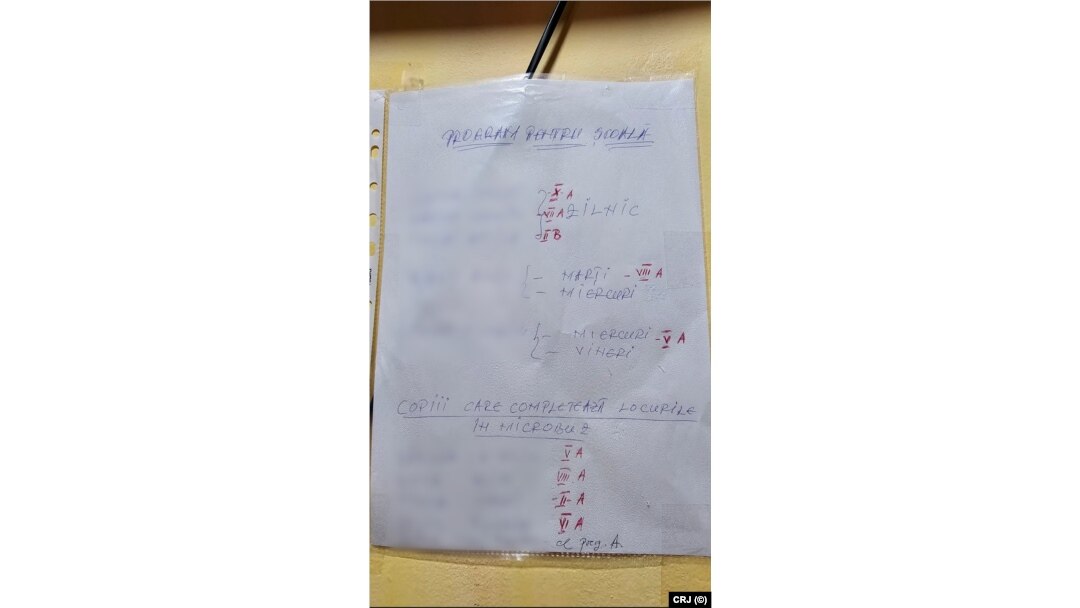 PROGRAM PENTRU ȘCOALĂ
- X A
- VII A ZILNIC
- II B
- MARȚI - VIII A
- MIERCURI
- MIERCURI - V A
- VINERI
COPIII CARE COMPLETEAZĂ LOCURILE
ÎN MICROBUZ
V A
VIII A
- II - A
VI A
cl preg. A.
CRJ (©)